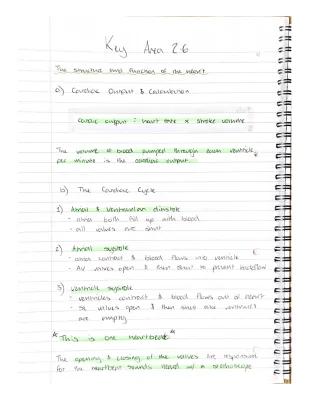 Key Area 2.6
The structure and function of the heart
a) Cardiac Output & Calculation
cardiac output = heart rate x stroke volume
The volume of blood pumped through each ventricle
per minute is the cardiac output
b) The Cardiac Cycle
1) Atrial & Ventricular diastole
- atria both fill up with blood
- all valves are shut
2) Atrial systole
- atria contract & blood flows into ventricle
- AV valves open & then shut to prevent backflow
3) Ventricle systole
- ventricles contract & blood flows out of heart
- SL valves open & then shut once ventricles
are empty
* This is one heartbeat *
The opening & closing of the valves are responsible
for the heartbeat sounds heard w/ a stethoscope